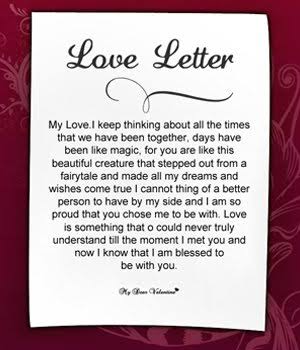 Love Letter
My Love.I keep thinking about all the times
that we have been together, days have
been like magic, for you are like this
beautiful creature that stepped out from a
fairytale and made all my dreams and
wishes come true I cannot thing of a better
person to have by my side and I am so
proud that you chose me to be with. Love
is something that o could never truly
understand till the moment I met you and
now I know that I am blessed to
be with you.
My Dear Valentine